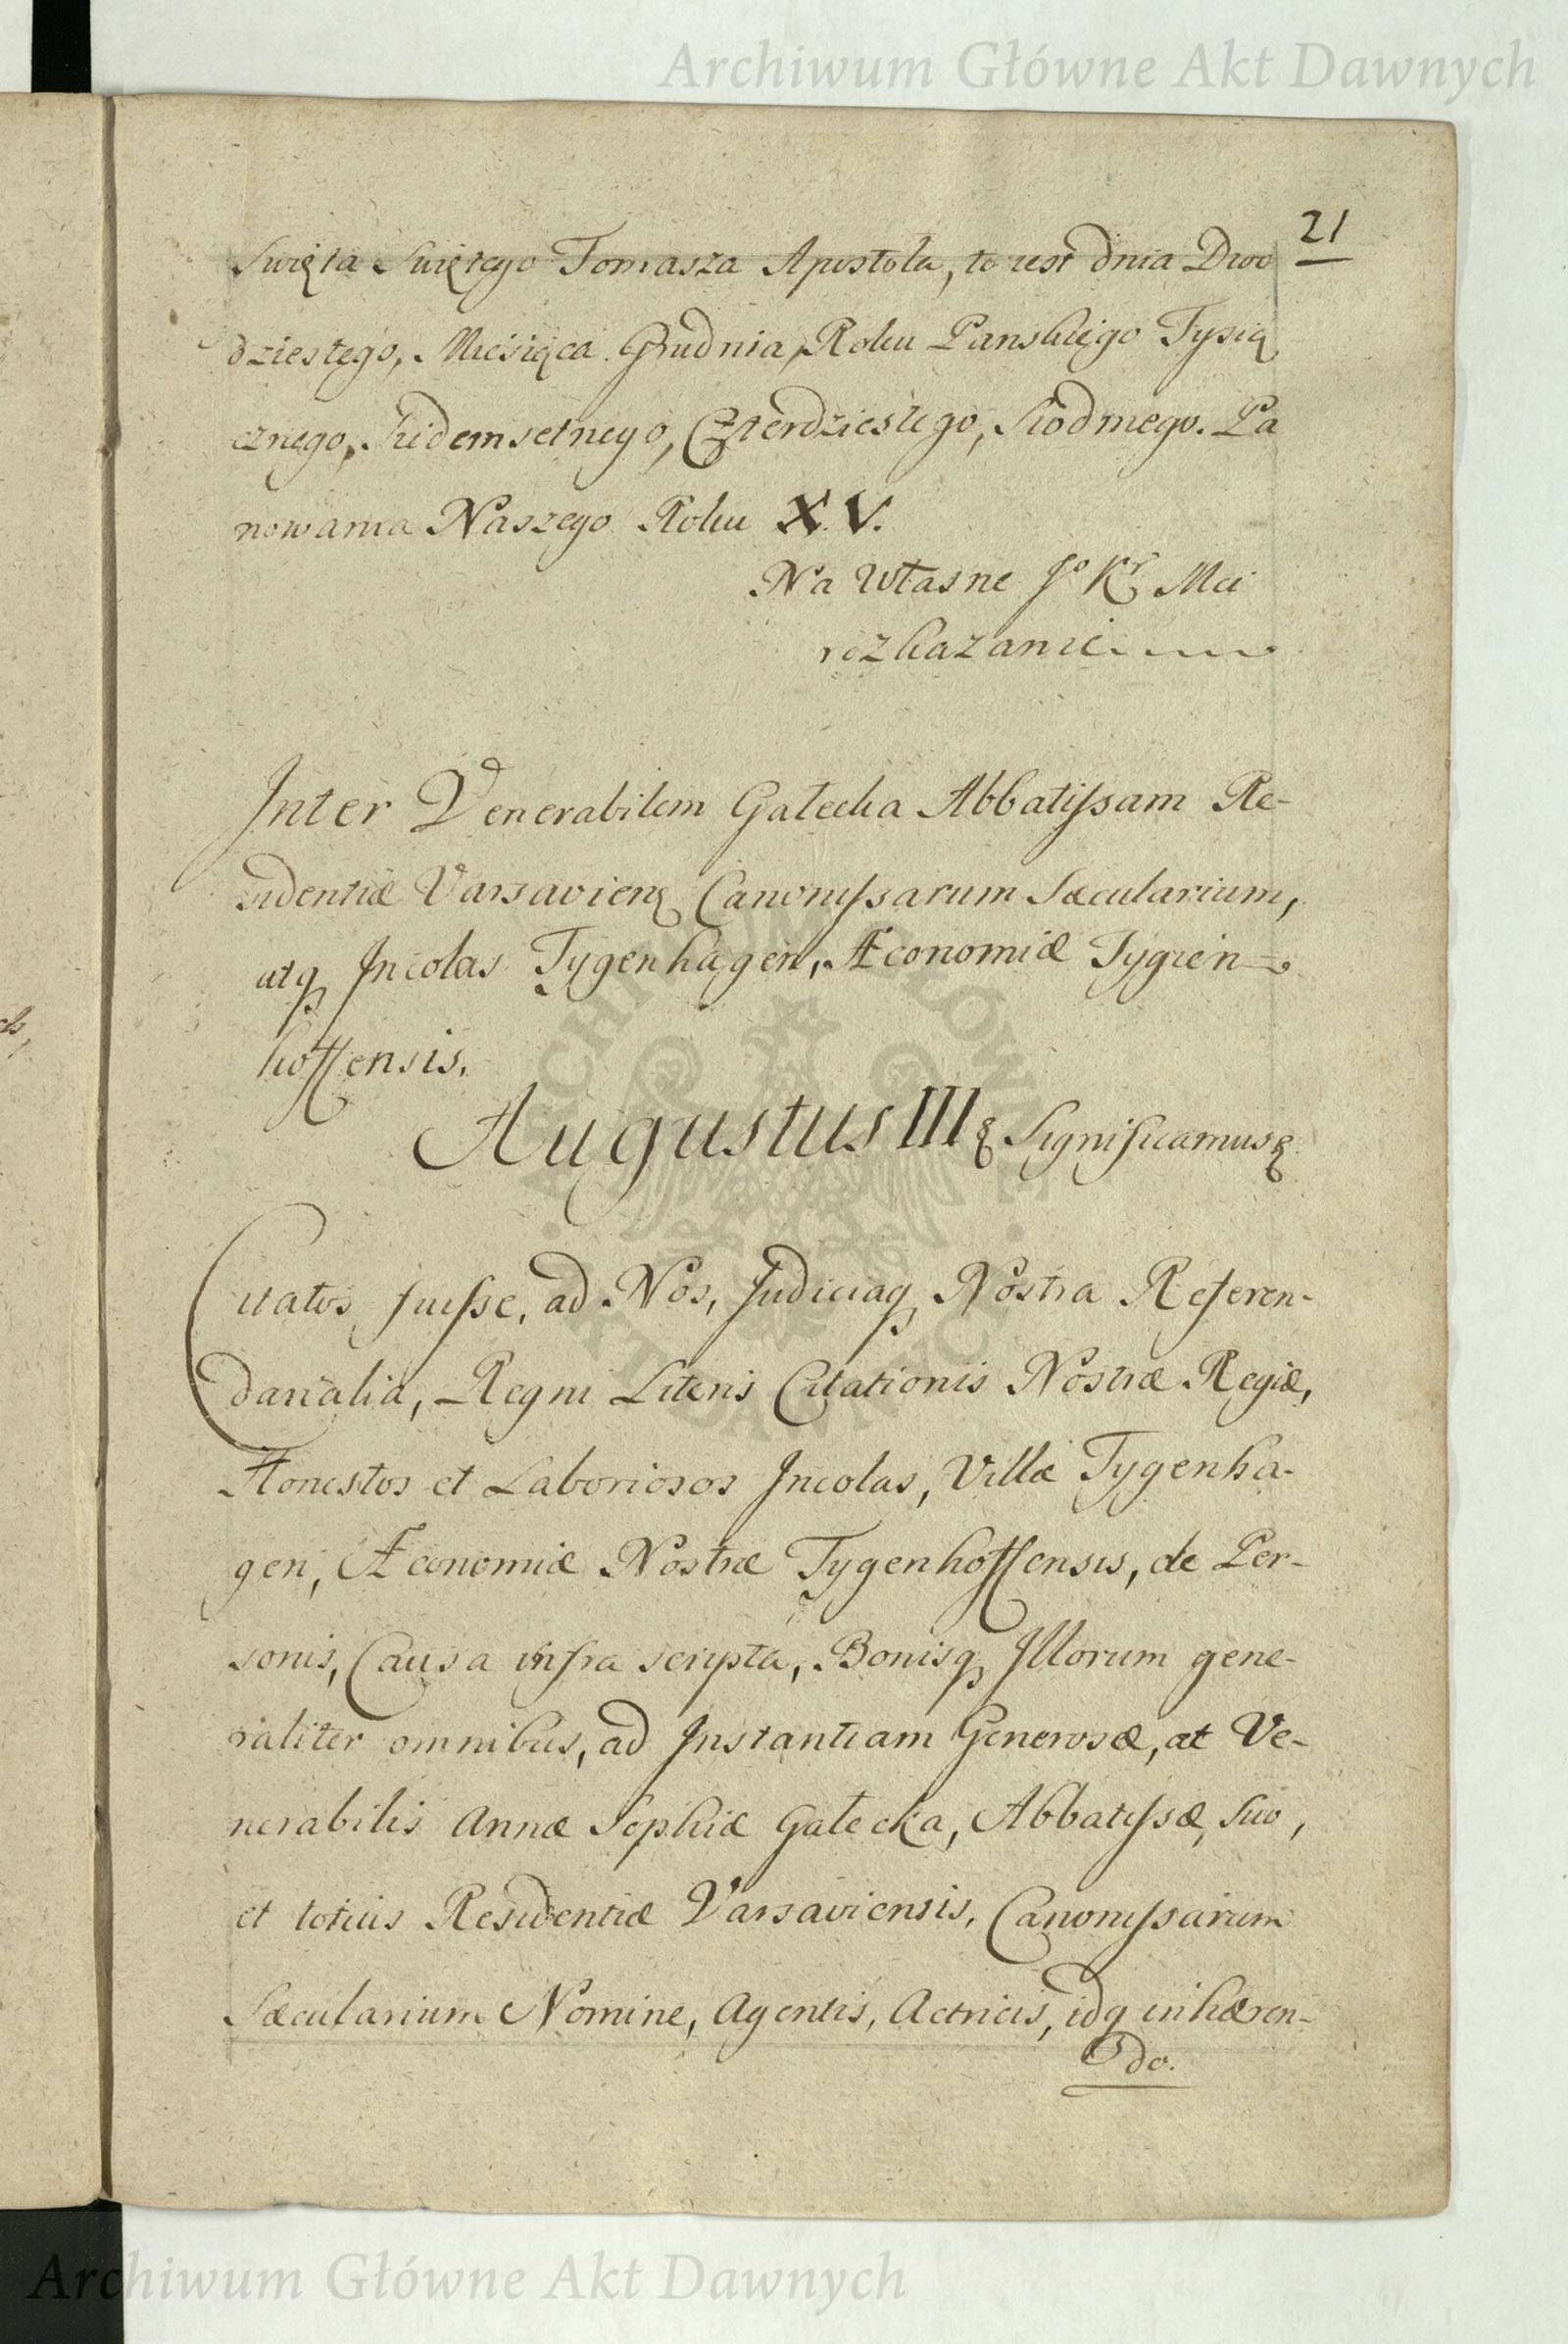 Archiwum Główne Akt Dawnych
21
Swięta Swiętego Tomasza Apostoła, to iest dnia Dwo
dziestego, Miesiąca Grudnia, Roku Panskiego Tysią
cznego, Siedemsetnego, Czterdziestego, Siodmego. Pa
nowania Naszego Roku XV.
Na własne Jo Kr Mci
rozkazanie
Inter Venerabilem Gałecka Abbatiſsam Re-
sidentiæ Varsavienꝫ Canoniſsarum Sæcularium,
atqꝫ Incolas Tygenhagen, Æconomiæ Tygien
hoffensis.
Augustus IIIꝫ Significamusꝫ
Citatos fuiſse, ad Nos, Judiciaqꝫ Nostra Referen-
darialia, Regni Literis Citationis Nostræ Regiæ,
Honestos et Laboriosos Incolas, Villæ Tygenha-
gen, Æconomiæ Nostræ Tygenhoffensis, de Per-
sonis, Causa infra scripta, Bonisqꝫ Illorum gene-
raliter omnibus, ad Instantiam Generosæ, at Ve-
nerabilis Annæ Sophiæ Gałecka, Abbatiſsæ, Suo,
et totius Residentiæ Varsaviensis, Canoniſsarum
Sæcularium Nomine, Agentis, Actricis, idqꝫ inhæren-
do.
Archiwum Główne Akt Dawnych